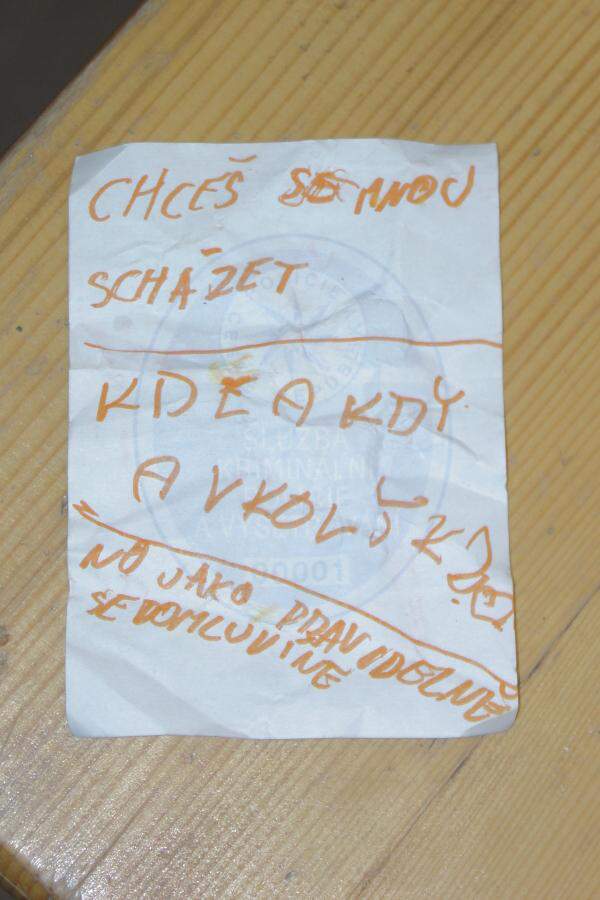 CHCEŠ SE MNOU
SCHÁZET
KDE A KDY
A V KOLIK
NO JAKO PRAVIDELNĚ
SE DOMLUVÍME
POLICIE
SLUŽBA
KRIMINÁLNÍ
POLICIE
A VYŠETŘOVÁNÍ
00001